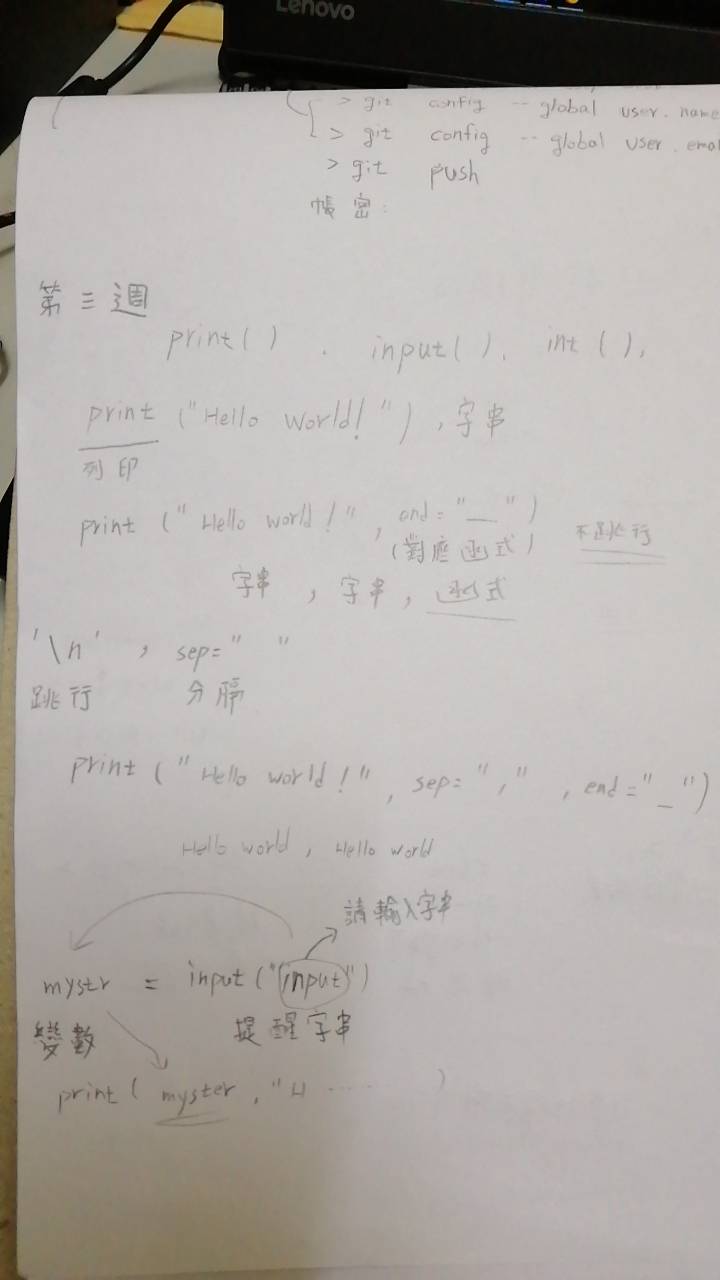 Lenovo
> git config -- global user.name
> git config -- global user.emai
> git push
帳密:
第三週
print() . input(). int().
print ("Hello World!") , 字串
列印
print ("Hello world!", end="__")
(對應函式) 不跳行
字串 , 字串 , 函式
'\n' , sep=" "
跳行 分隔
print ("Hello world!", sep="," , end="_")
Hello world , Hello world
請輸入字串
mystr = input("input")
變數 提醒字串
print( myster , "H ...... )